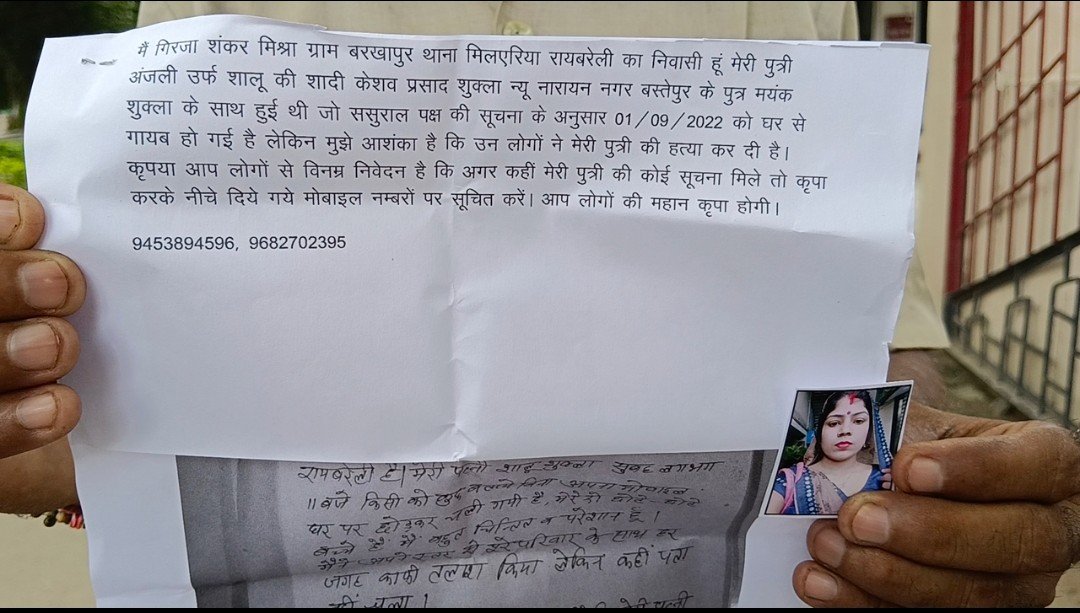 मैं गिरजा शंकर मिश्रा ग्राम बरखापुर थाना मिलएरिया रायबरेली का निवासी हूं मेरी पुत्री
अंजली उर्फ शालू की शादी केशव प्रसाद शुक्ला न्यू नारायन नगर बस्तेपुर के पुत्र मयंक
शुक्ला के साथ हुई थी जो ससुराल पक्ष की सूचना के अनुसार 01/09/2022 को घर से
गायब हो गई है लेकिन मुझे आशंका है कि उन लोगों ने मेरी पुत्री की हत्या कर दी है।
कृपया आप लोगों से विनम्र निवेदन है कि अगर कहीं मेरी पुत्री की कोई सूचना मिले तो कृपा
करके नीचे दिये गये मोबाइल नम्बरों पर सूचित करें। आप लोगों की महान कृपा होगी।
9453894596, 9682702395
रायबरेली है। मेरी पत्नी शालू शुक्ला सुबह लगभग
11 बजे किसी को कुछ बताये बिना अपना मोबाइल
घर पर छोड़कर चली गयी है, मेरे दो छोटे छोटे
बच्चे हैं मैं बहुत चिन्तित व परेशान हूँ।
मैंने अपने स्तर से परिवार के साथ हर
जगह काफी तलाश किया लेकिन कहीं पता
नहीं चला।